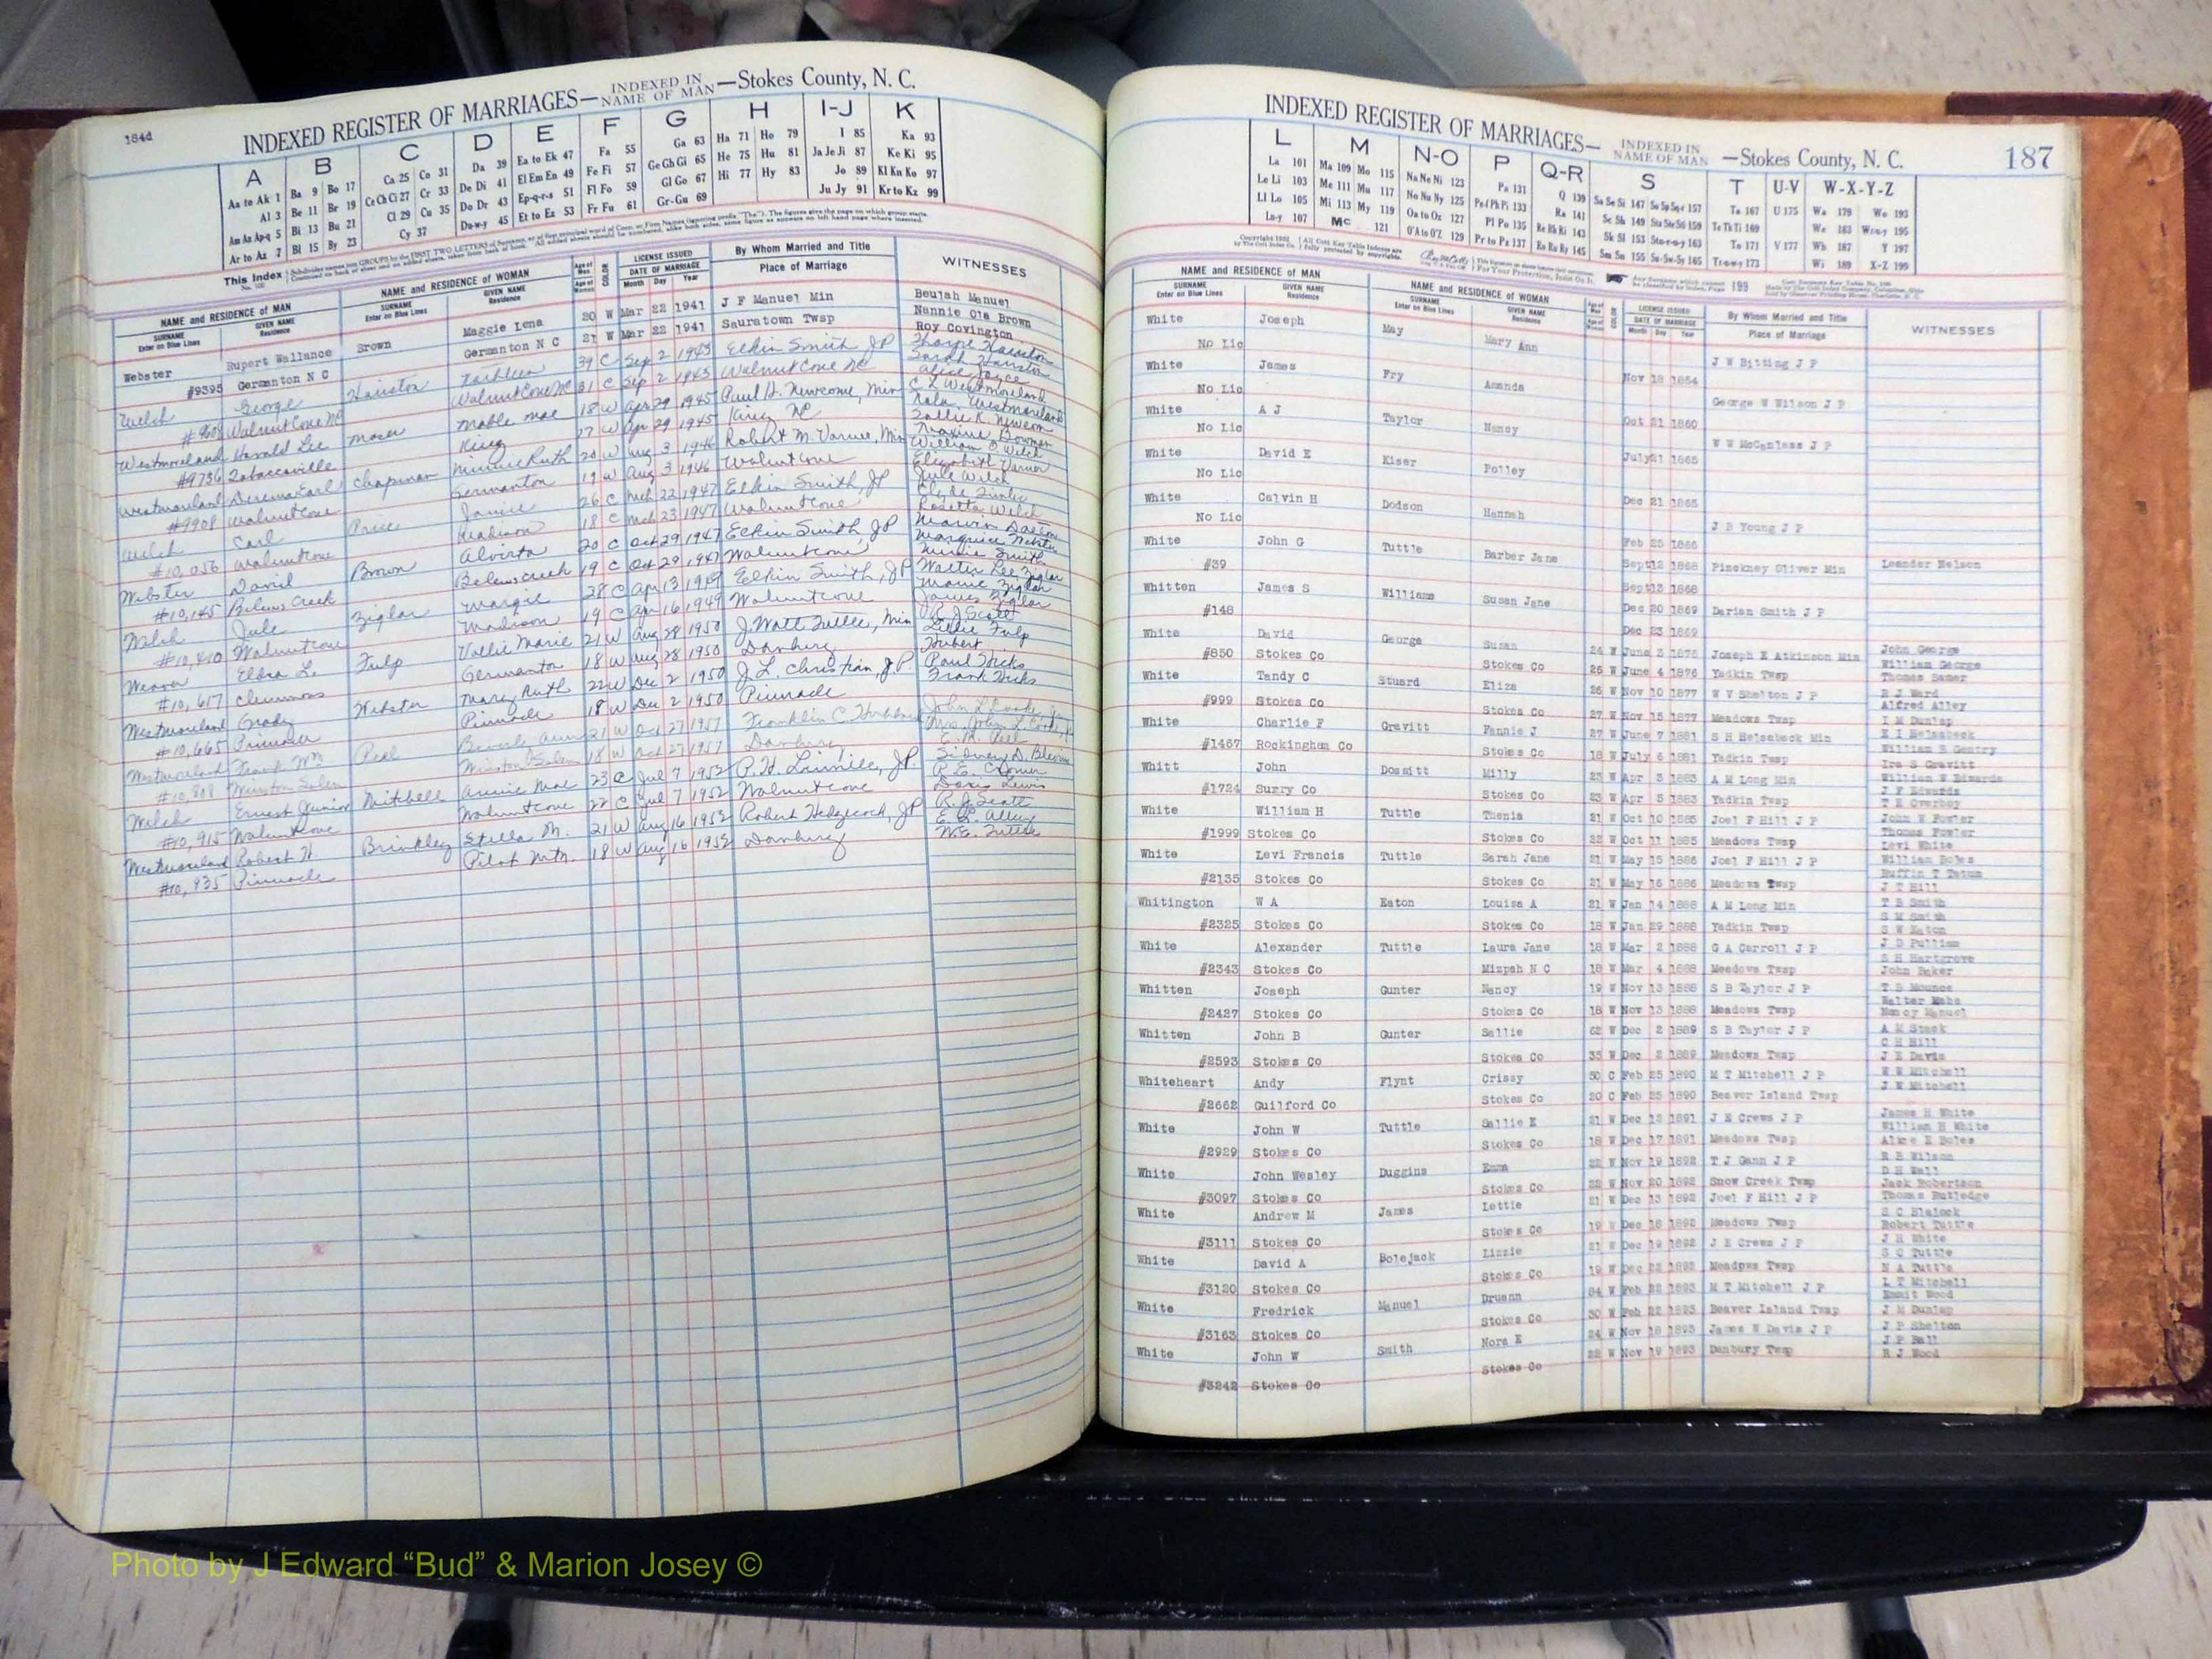 184d
INDEXED REGISTER OF MARRIAGES— INDEXED IN NAME OF MAN —Stokes County, N. C.
A B C D E F G H I-J K
Aa to Ak 1 Ba 9 Bo 17 Ca 25 Co 31 Da 39 Ea to Ek 47 Fa 55 Ga 63 Ha 71 Ho 79 I 85 Ka 93
Al 3 Be 11 Br 19 Ce Ch Ci 27 Cr 33 De Di 41 El Em En 49 Fe Fi 57 Ge Gh Gi 65 He 75 Hu 81 Ja Je Ji 87 Ke Ki 95
Am An Ap-q 5 Bi 13 Bu 21 Cl 29 Cu 35 Do Dr 43 Ep-q-r-s 51 Fl Fo 59 Gl Go 67 Hi 77 Hy 83 Jo 89 Kl Kn Ko 97
Ar to Az 7 Bl 15 By 23 Cy 37 Du-w-y 45 Et to Ez 53 Fr Fu 61 Gr-Gu 69 Ju Jy 91 Kr to Kz 99
This Index
NAME and RESIDENCE of MAN NAME and RESIDENCE of WOMAN LICENSE ISSUED By Whom Married and Title WITNESSES
SURNAME GIVEN NAME SURNAME GIVEN NAME COLOR DATE OF MARRIAGE Place of Marriage
Enter on Blue Lines Residence Enter on Blue Lines Residence Month Day Year
Webster Rupert Wallance Brown Maggie Lena 20 W Mar 22 1941 J F Manuel Min Beulah Manuel
Nannie Ola Brown
#9395 Germanton N C Germanton N C 21 W Mar 22 1941 Sauratown Twsp Roy Covington
Welch George Hairston Kathleen 39 C Sep 2 1943 Elkin Smith JP
Walnut Cove NC Walnut Cove NC 31 C Sep 2 1943 Walnut Cove NC Alice Joyce
Westmoreland Harold Lee Moser Mable Mae 18 W Apr 29 1945 Paul H. Newcome, Min C L Westmoreland
#9736 Tobaccoville King 17 W Apr 29 1945 King NC
Westmoreland Chapman Minnie Ruth 20 W Aug 3 1946 Robert M. Varner, Min Maxine Bowman
#9908 Walnut Cove Germanton 19 W Aug 3 1946 Walnut Cove Elizabeth Varner
Welch Carl Price Janice 26 C Mch 22 1947 Elkin Smith, JP Jule Welch
#10,056 Walnut Cove Madison 18 C Mch 23 1947 Walnut Cove Rosetta Welch
Webster David Brown Alverta 20 C Oct 29 1947 Elkin Smith, JP
#10,145 Belews Creek Belews Creek 19 C Oct 29 1947 Walnut Cove Minnie Smith
Welch Jule Ziglar Margie 28 C Apr 13 1949 Elkin Smith, JP Walter Lee Ziglar
#10,410 Walnut Cove Madison 19 C Apr 16 1949 Walnut Cove James Ziglar
Weaver Eldra L. Fulp Vallie Marie 21 W Aug 28 1950 J. Watt Tuttle, Min R. J. Scott
#10,617 Clemmons Germanton 18 W Aug 28 1950 Danbury
Westmoreland Grady Webster Mary Ruth 22 W Dec 2 1950 J. L. Christian, JP Paul Hicks
#10,665 Pinnacle Pinnacle 18 W Dec 2 1950 Pinnacle Frank Hicks
Westmoreland Frank Wm Peal Beverly Ann 21 W Oct 27 1951 John L. Cooke, Jr
Winston Salem Winston Salem 18 W Oct 27 1951 Danbury
Welch Ernest Junior Mitchell Annie Mae 23 C Jul 7 1952 JP.
#10,915 Walnut Cove Walnut Cove 22 C Jul 7 1952 Walnut Cove Doris Lewis
Westmoreland Robert H. Brinkley Stella M. 21 W Aug 16 1952 Robert Hedgecock, JP R. J. Scott
#10,935 Pinnacle Pilot Mtn. 18 W Aug 16 1952 Danbury W. E. Tuttle
INDEXED REGISTER OF MARRIAGES— INDEXED IN NAME OF MAN —Stokes County, N. C. 187
L M N-O P Q-R S T U-V W-X-Y-Z
La 101 Ma 109 Mo 115 Na Ne Ni 123 Pa 131 Q 139 Sa Se Si 147 So Sp Sq-r 157 Ta 167 U 175 Wa 179 Wo 193
Le Li 103 Me 111 Mu 117 No Nu Ny 125 Pe-f Ph Pi 133 Ra 141 Sc Sh 149 Sta Ste Sti 159 Te Th Ti 169 We 183 Wr-u-y 195
Ll Lo 105 Mi 113 My 119 Oa to Oz 127 Pl Po 135 Re Rh Ri 143 Sk Sl 153 Sto-r-u-y 163 To 171 V 177 Wh 187 Y 197
Lu-y 107 Mc 121 O'A to O'Z 129 Pr to Pz 137 Ro Ru Ry 145 Sm Sn 155 Su-Sw-Sy 165 Tr-u-w-y 173 Wi 189 X-Z 199
NAME and RESIDENCE of MAN NAME and RESIDENCE of WOMAN LICENSE ISSUED By Whom Married and Title WITNESSES
SURNAME GIVEN NAME SURNAME GIVEN NAME DATE OF MARRIAGE Place of Marriage
Enter on Blue Lines Residence Enter on Blue Lines Residence Month Day Year
White Joseph May Mary Ann J W Bitting J P
No Lic Nov 18 1854
White James Fry Amanda George W Wilson J P
No Lic Oct 21 1860
White A J Taylor Nancy W W McCanless J P
No Lic July 21 1865
White David E Kiser Polley
No Lic Dec 21 1865
White Calvin H Dodson Hannah J B Young J P
No Lic Feb 25 1866
White John G Tuttle Barber Jane Sept 12 1868 Pinckney Oliver Min Leander Nelson
#39 Sept 13 1868
Whitten James S Williams Susan Jane Dec 20 1869 Darian Smith J P
#148 Dec 23 1869
White David George Susan 24 W June 3 1876 Joseph E Atkinson Min John George
William George
#850 Stokes Co Stokes Co 25 W June 4 1876 Yadkin Twsp
White Tandy C Stuard Eliza 26 W Nov 10 1877 W V Shelton J P R J Ward
Alfred Alley
#999 Stokes Co Stokes Co 27 W Nov 15 1877 Meadows Twsp I M Dunlap
White Charlie F Gravitt Fannie J 27 W June 7 1881 S H Helsabeck Min E I Helsabeck
William S Gentry
#1467 Rockingham Co Stokes Co 18 W July 6 1881 Yadkin Twsp Ira S Gravitt
Whitt John Dossitt Milly 23 W Apr 3 1883 A M Long Min William W Edwards
J F Edwards
#1724 Surry Co Stokes Co 23 W Apr 5 1883 Yadkin Twsp T E Overboy
White William H Tuttle Thenia 21 W Oct 10 1885 Joel F Hill J P John W Fowler
Thomas Fowler
#1999 Stokes Co Stokes Co 22 W Oct 11 1885 Meadows Twsp Levi White
White Levi Francis Tuttle Sarah Jane 21 W May 15 1886 Joel F Hill J P William Boles
Ruffin T Tatum
#2135 Stokes Co Stokes Co 21 W May 16 1886 Meadows Twsp J T Hill
Whitington W A Eaton Louisa A 21 W Jan 14 1888 A M Long Min T S Smith
S M Smith
#2325 Stokes Co Stokes Co 18 W Jan 29 1888 Yadkin Twsp S W Eaton
White Alexander Tuttle Laura Jane 18 W Mar 2 1888 G A Carroll J P J D Pulliam
S H Hartgrove
#2343 Stokes Co Mizpah N C 18 W Mar 4 1888 Meadows Twsp John Baker
Whitten Joseph Gunter Nancy 19 W Nov 13 1888 S B Taylor J P T B Mounce
Walter Mabe
#2427 Stokes Co Stokes Co 18 W Nov 13 1888 Meadows Twsp Nancy Manuel
Whitten John B Gunter Sallie 62 W Dec 2 1889 S B Taylor J P A M Stack
C H Hill
#2593 Stokes Co Stokes Co 35 W Dec 2 1889 Meadows Twsp J E Davis
Whiteheart Andy Flynt Crissy 50 C Feb 25 1890 M T Mitchell J P W W Mitchell
J W Mitchell
#2662 Guilford Co Stokes Co 20 C Feb 25 1890 Beaver Island Twsp
White John W Tuttle Sallie E 21 W Dec 12 1891 J E Crews J P James H White
William H White
#2929 Stokes Co Stokes Co 18 W Dec 17 1891 Meadows Twsp Alice E Boles
White John Wesley Duggins Emma 22 W Nov 19 1892 T J Gann J P R B Wilson
D H Wall
#3097 Stokes Co Stokes Co 22 W Nov 20 1892 Snow Creek Twsp Jack Robertson
White Andrew M James Lettie 21 W Dec 13 1892 Joel F Hill J P Thomas Rutledge
S C Blalock
#3111 Stokes Co Stokes Co 19 W Dec 18 1892 Meadows Twsp Robert Tuttle
White David A Bolejack Lizzie 21 W Dec 19 1892 J E Crews J P J H White
S C Tuttle
#3120 Stokes Co Stokes Co 19 W Dec 22 1892 Meadows Twsp N A Tuttle
White Fredrick Manuel Druann 64 W Feb 22 1893 M T Mitchell J P L T Mitchell
Emmit Wood
#3163 Stokes Co Stokes Co 30 W Feb 22 1893 Beaver Island Twsp J M Dunlap
White John W Smith Nora E 24 W Nov 18 1893 James W Davis J P J P Shelton
J P Ball
#3242 Stokes Co Stokes Co 22 W Nov 19 1893 Danbury Twsp R J Wood
Photo by J Edward “Bud” & Marion Josey ©